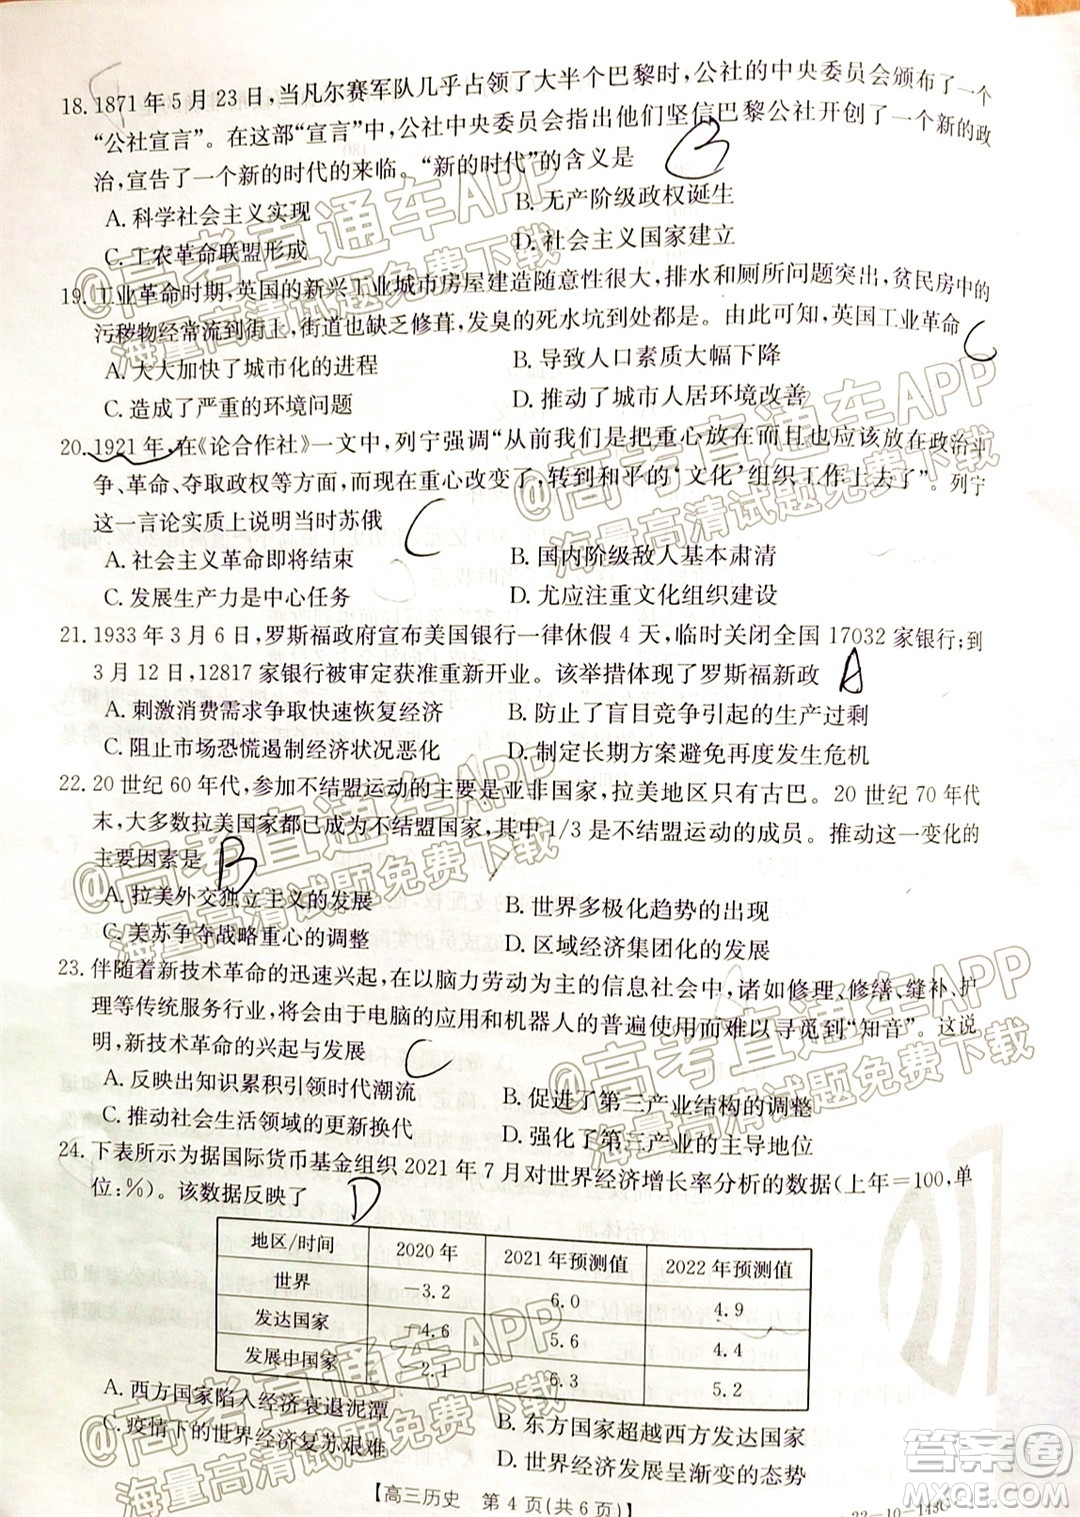 18. 1871 年 5 月 23 日,当凡尔赛军队几乎占领了大半个巴黎时,公社的中央委员会颁布了一个
“公社宣言”。在这部“宣言”中,公社中央委员会指出他们坚信巴黎公社开创了一个新的政
治,宣告了一个新的时代的来临。“新的时代”的含义是 B
A. 科学社会主义实现 B. 无产阶级政权诞生
C. 工农革命联盟形成 D. 社会主义国家建立
19. 工业革命时期,英国的新兴工业城市房屋建造随意性很大,排水和厕所问题突出,贫民房中的
污秽物经常流到街上,街道也缺乏修葺,发臭的死水坑到处都是。由此可知,英国工业革命 C
A. 大大加快了城市化的进程 B. 导致人口素质大幅下降
C. 造成了严重的环境问题 D. 推动了城市人居环境改善
20. 1921 年,在《论合作社》一文中,列宁强调“从前我们是把重心放在而且也应该放在政治斗
争、革命、夺取政权等方面,而现在重心改变了,转到和平的‘文化’组织工作上去了”。列宁
这一言论实质上说明当时苏俄 C
A. 社会主义革命即将结束 B. 国内阶级敌人基本肃清
C. 发展生产力是中心任务 D. 尤应注重文化组织建设
21. 1933 年 3 月 6 日,罗斯福政府宣布美国银行一律休假 4 天,临时关闭全国 17032 家银行;到
3 月 12 日,12817 家银行被审定获准重新开业。该举措体现了罗斯福新政 A
A. 刺激消费需求争取快速恢复经济 B. 防止了盲目竞争引起的生产过剩
C. 阻止市场恐慌遏制经济状况恶化 D. 制定长期方案避免再度发生危机
22. 20 世纪 60 年代,参加不结盟运动的主要是亚非国家,拉美地区只有古巴。20 世纪 70 年代
末,大多数拉美国家都已成为不结盟国家,其中 1/3 是不结盟运动的成员。推动这一变化的
主要因素是 B
A. 拉美外交独立主义的发展 B. 世界多极化趋势的出现
C. 美苏争夺战略重心的调整 D. 区域经济集团化的发展
23. 伴随着新技术革命的迅速兴起,在以脑力劳动为主的信息社会中,诸如修理、修缮、缝补、护
理等传统服务行业,将会由于电脑的应用和机器人的普遍使用而难以寻觅到“知音”。这说
明,新技术革命的兴起与发展 C
A. 反映出知识累积引领时代潮流 B. 促进了第三产业结构的调整
C. 推动社会生活领域的更新换代 D. 强化了第三产业的主导地位
24. 下表所示为据国际货币基金组织 2021 年 7 月对世界经济增长率分析的数据(上年=100,单
位:%)。该数据反映了 D
地区/时间 2020 年 2021 年预测值 2022 年预测值
世界 -3.2 6.0 4.9
发达国家 -4.6 5.6 4.4
发展中国家 -2.1 6.3 5.2
A. 西方国家陷入经济衰退泥潭 B. 东方国家超越西方发达国家
C. 疫情下的世界经济复苏艰难 D. 世界经济发展呈渐变的态势
【高三历史 第 4 页(共 6 页)】
22-10-143C
@高考直通车APP
海量高清试题免费下载
@高考直通车APP
海量高清试题免费下载
@高考直通车APP
海量高清试题免费下载
@高考直通车APP
海量高清试题免费下载
@高考直通车APP
海量高清试题免费下载
答案圈
MXQE.COM